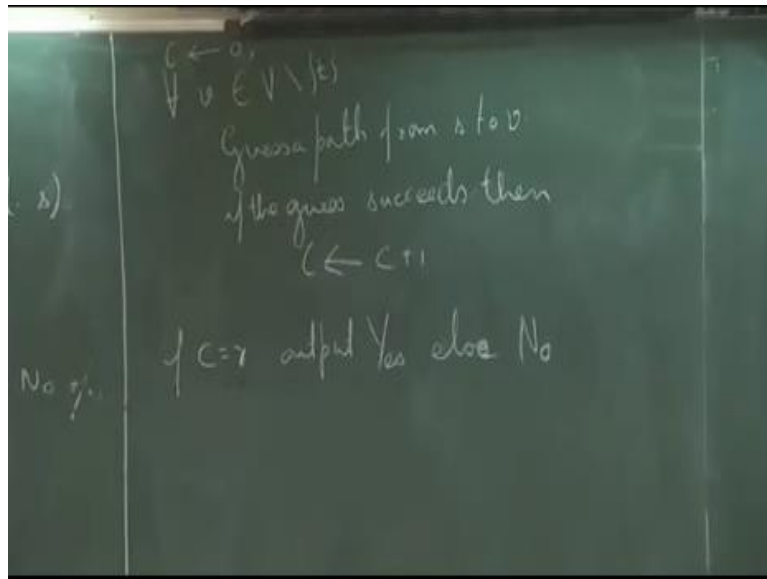 C ← 0,
∀ v ∈ V \ {t}
Guess a path from s to v
if the guess succeeds then
C ← C+1
if C=r output Yes else No
s)
No